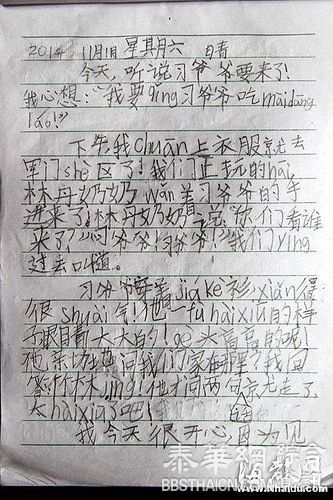 2014 11月1日 星期六 晴
今天,听说习爷爷要来了!
我心想:"我要qǐng习爷爷吃màidāng
láo!"
下午,我chuān上衣服就去
军门shè区了!我们正玩的hāi,
林丹奶奶wǎn着习爷爷的手
进来了!林丹奶奶说:"你们看谁
来了?""习爷爷!习爷爷!"我们yíng
过去叫道。
习爷爷穿着jiākè衫,xiǎn得
很shuài气!他一fù hàixiū的样
子,眼睛大大的!gè头高高的呢!
他亲切地问我们家在哪?我回
答林jìng!他才问两句就走了
太hàixiū了吧!
我今天很开心,因为见
泰華網
BBSTHAICN
www.Nhaidu.com